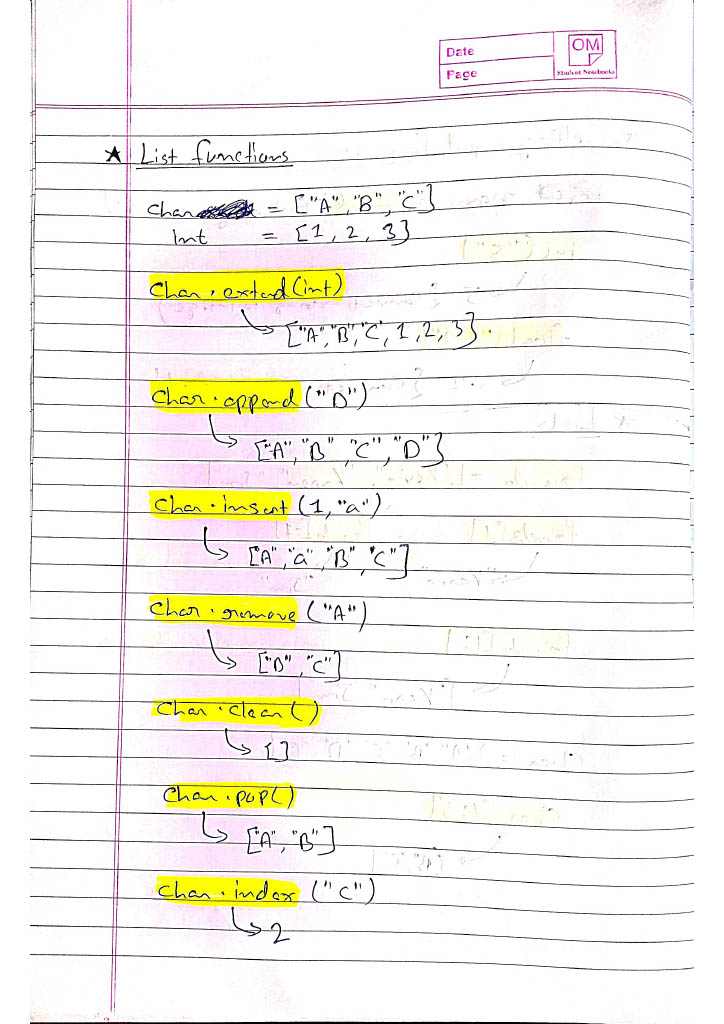 Date
Page
OM
Student Notebooks
★ List functions
Char = ["A", "B", "C"]
Int = [1, 2, 3]
Char.extend(int)
["A","B","C, 1, 2, 3]
Char.append ("D")
["A", "B", "C", "D"]
Char.insert (1, "a")
["A", "a", "B", "C"]
Char.remove ("A")
["B", "C"]
Char.clear()
[]
Char.pop()
["A", "B"]
Char.index ("C")
2